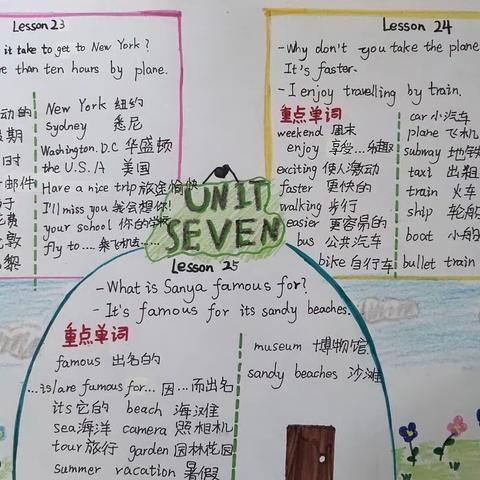 Lesson 23
it take to get to New York?
than ten hours by plane.
New York 纽约
Sydney 悉尼
Washington. D.C 华盛顿
the U.S.A 美国
Have a nice trip 旅途愉快
I'll miss you 我会想你!
your school 你的学校
fly to.... 乘飞机去......
动的
假期
时
邮件
花费
敦
黎
Lesson 24
-Why don't you take the plane
It's faster.
-I enjoy travelling by train.
重点单词
weekend 周末
enjoy 享受...乐趣
exciting 使人激动
faster 更快的
walking 步行
easier 更容易的
bus 公共汽车
bike 自行车
car 小汽车
plane 飞机
subway 地铁
taxi 出租
train 火车
ship 轮船
boat 小船
bullet train
UNIT
SEVEN
Lesson 25
-What is Sanya famous for?
-It's famous for its sandy beaches.
重点单词
famous 出名的
...is/are famous for... 因...而出名
its 它的 beach 海滩
sea 海洋 camera 照相机
tour 旅行 garden 园林花园
summer vacation 暑假
museum 博物馆
sandy beaches 沙滩